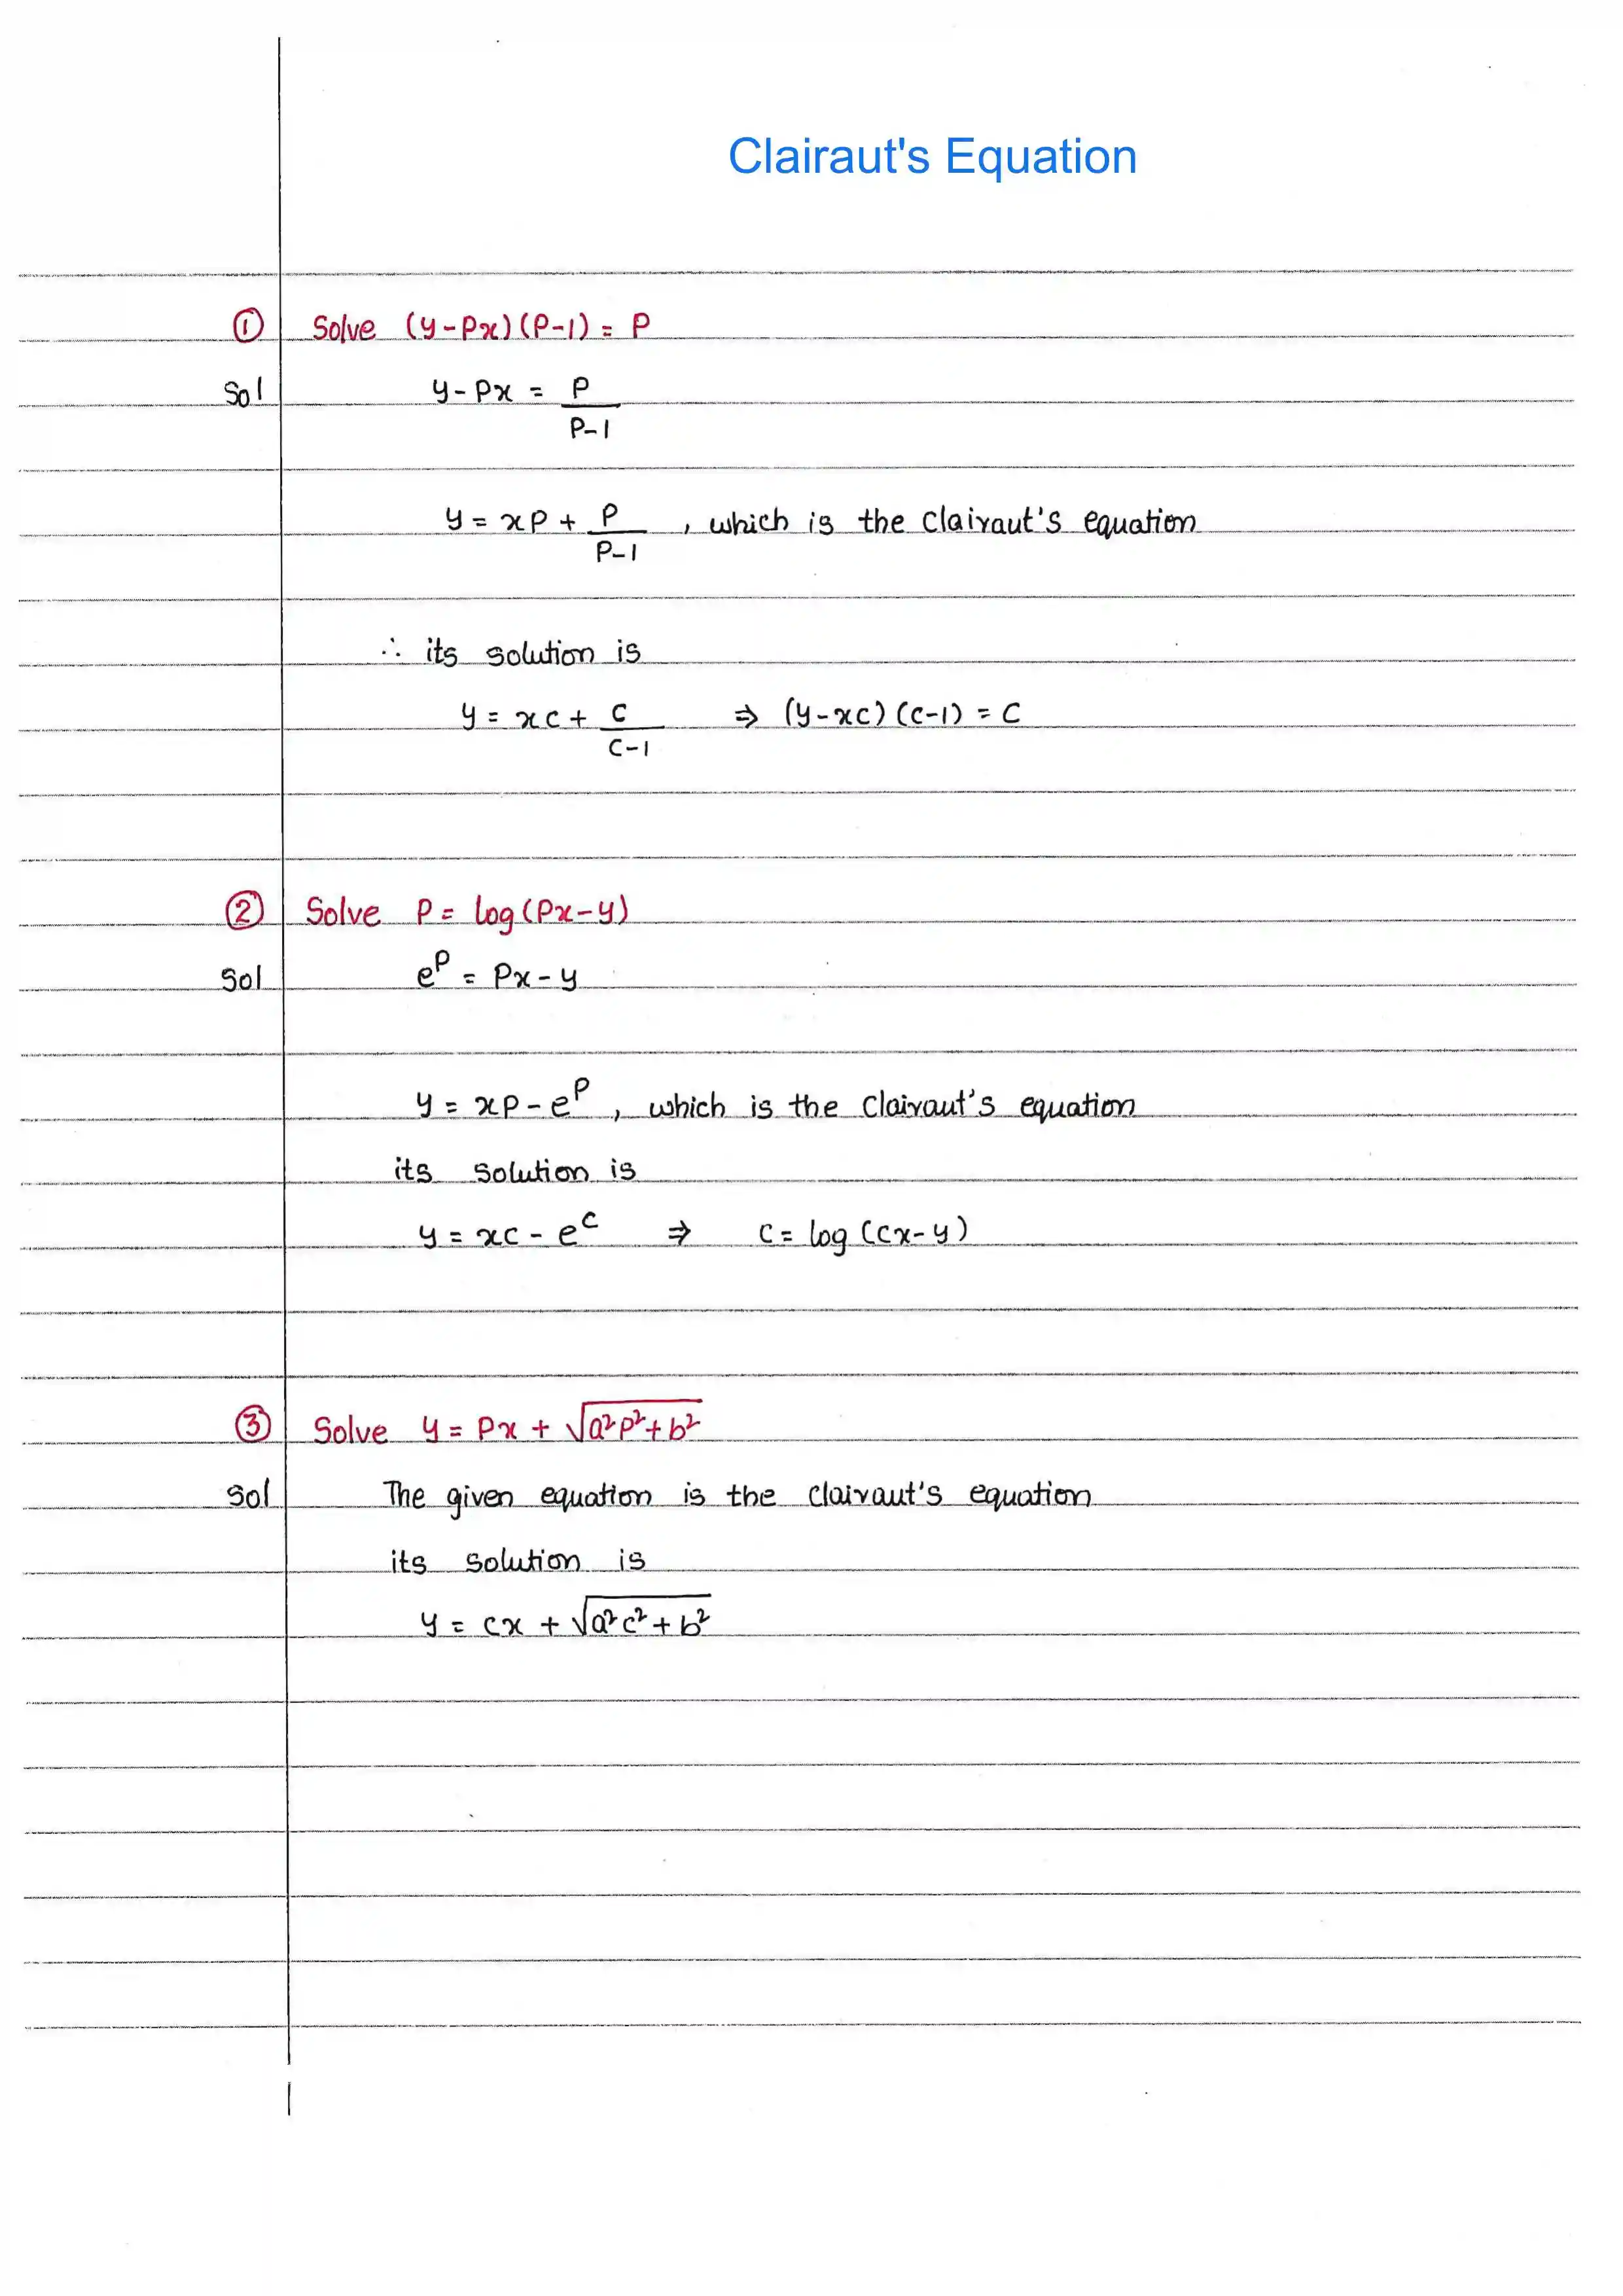 Clairaut's Equation
① Solve (y-Px)(P-1) = P
Sol y-Px = P/P-1
y = xP + P/P-1 , which is the Clairaut's equation
∴ its solution is
y = xc + c/c-1 ⇒ (y-xc)(c-1) = c
② Solve P = log(Px-y)
Sol e^P = Px-y
y = xP - e^P , which is the Clairaut's equation
its solution is
y = xc - e^c ⇒ c = log(cx-y)
③ Solve y = Px + √a²P²+b²
Sol The given equation is the clairaut's equation
its solution is
y = cx + √a²c²+b²